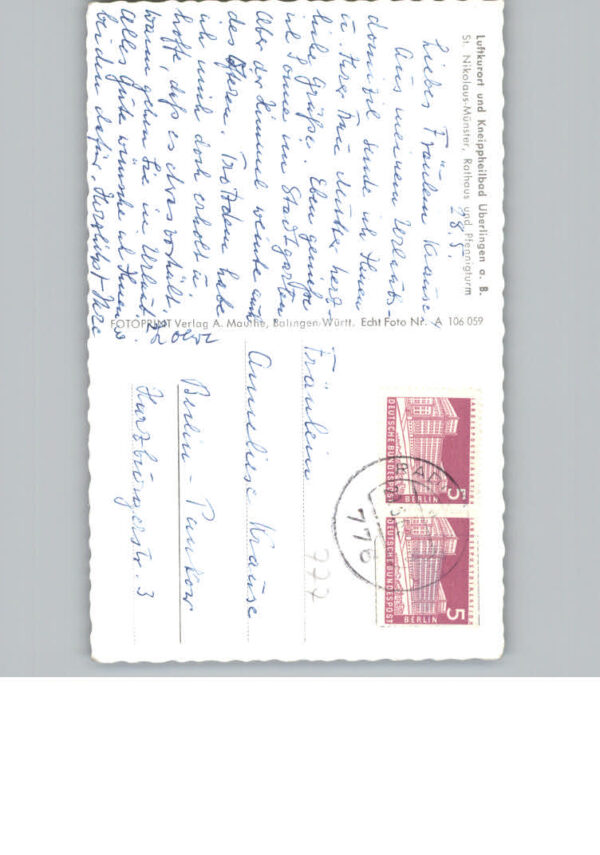 Luftkurort und Kneippheilbad Überlingen a. B.
St. Nikolaus-Münster, Rathaus und Pfennigturm
28.5.
Liebes Fräulein Krause,
Aus meinem Urlaubs-
domizil sende ich Ihnen
u. Ihrer Frau Mutter herz-
liche Grüße. Eben genieße
ich Sonne im Stadtgarten,
Aber der Himmel weinte auch
des öfteren. Trotzdem habe
ich mich doch erholt u.
hoffe, daß es etwas vorhält.
Wann gehen Sie in Urlaub?
Alles Gute wünsche ich Ihnen
beiden dafür, Herzlichst Ihre
FOTOPRINT Verlag A. Mauthe, Balingen-Württ. Echt Foto Nr. A 106 059
Fräulein
Anneliese Krause
Berlin-Pankow
Harzburgerstr. 3
777
DEUTSCHE BUNDESPOST
BERLIN
5
DEUTSCHE BUNDESPOST
BERLIN
5
776